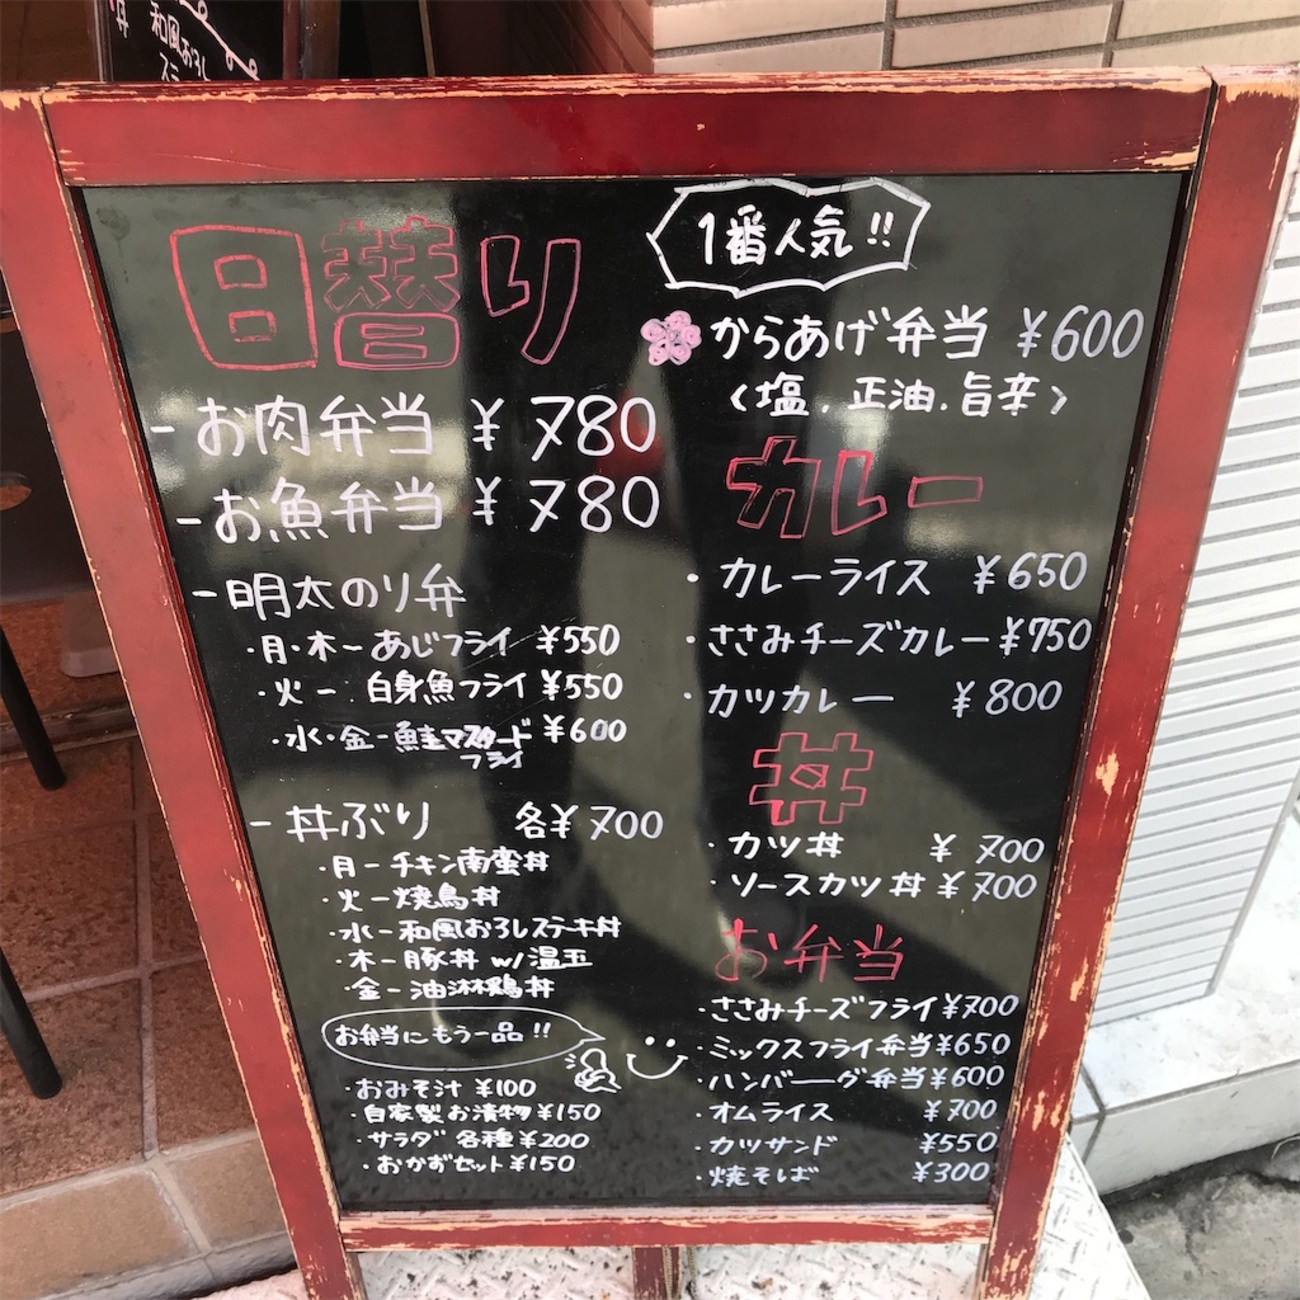 和風おろし
日替り
-お肉弁当 ¥780
-お魚弁当 ¥780
-明太のり弁
・月・木-あじフライ ¥550
・火-白身魚フライ ¥550
・水・金-鮭マスタードフライ ¥600
-丼ぶり 各¥700
・月-チキン南蛮丼
・火-焼鳥丼
・水-和風おろしステーキ丼
・木-豚丼 w/温玉
・金-油淋鶏丼
お弁当にもう一品!!
・おみそ汁 ¥100
・自家製お漬物 ¥150
・サラダ 各種 ¥200
・おかずセット ¥150
1番人気!!
からあげ弁当 ¥600
(塩.正油.旨辛)
カレー
・カレーライス ¥650
・ささみチーズカレー ¥750
・カツカレー ¥800
丼
・カツ丼 ¥700
・ソースカツ丼 ¥700
お弁当
・ささみチーズフライ ¥700
・ミックスフライ弁当 ¥650
・ハンバーグ弁当 ¥600
・オムライス ¥700
・カツサンド ¥550
・焼そば ¥300